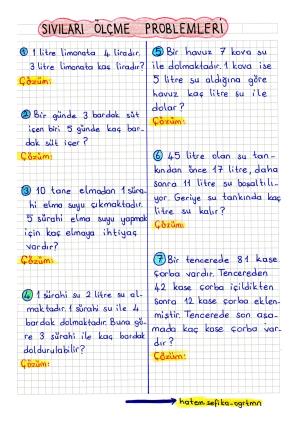 SIVILARI ÖLÇME PROBLEMLERİ
① 1 litre limonata 4 liradır.
3 litre limonata kaç liradır?
Çözüm:
② Bir günde 3 bardak süt
içen biri 5 günde kaç bar-
dak süt içer?
Çözüm:
③ 10 tane elmadan 1 süra-
hi elma suyu çıkmaktadır.
5 sürahi elma suyu yapmak
için kaç elmaya ihtiyaç
vardır?
Çözüm:
④ 1 sürahi su 2 litre su al-
maktadır. 1 sürahi su ile 4
bardak dolmaktadır. Buna gö-
re 3 sürahi ile kaç bardak
doldurulabilir?
Çözüm:
⑤ Bir havuz 7 kova su
ile dolmaktadır. 1 kova ise
5 litre su aldığına göre
havuz kaç litre su ile
dolar?
Çözüm:
⑥ 45 litre olan su tan-
kından önce 17 litre, daha
sonra 11 litre su boşaltılı-
yor. Geriye su tankında kaç
litre su kalır?
Çözüm:
⑦ Bir tencerede 81 kase
çorba vardır. Tencereden
42 kase çorba içildikten
sonra 12 kase çorba eklen-
miştir. Tencerede son aşa-
mada kaç kase çorba var-
dır?
Çözüm:
hatem.sefika_ogrtmn